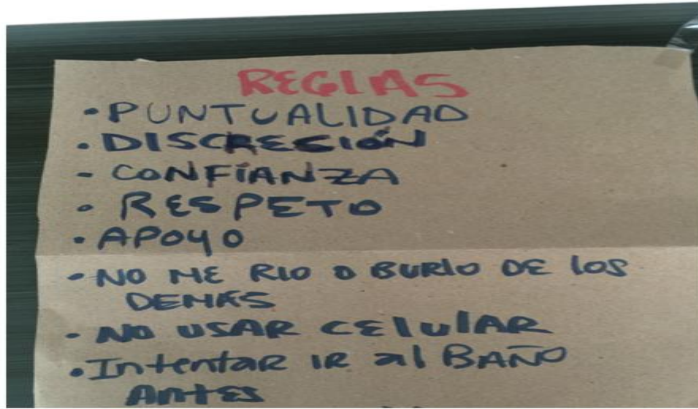 REGLAS
• PUNTUALIDAD
• DISCRECIÓN
- CONFIANZA
• RESPETO
• APOYO
• NO ME RIO O BURLO DE LOS
DEMÁS
- NO USAR CELULAR
• Intentar IR al BAÑO
Antes